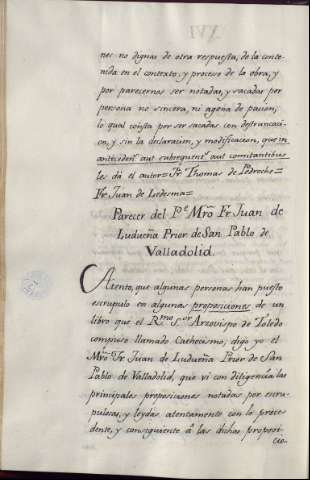 nes no dignas de otra respuesta, de la conte-
nida en el contexto, y proceso de la obra, y
por parecernos ser notadas, y sacadas por
persona no sincera, ni agena de pasion;
lo qual consta por ser sacadas con destruncaci-
on, y sin la declaracion, y modificacion, que in
antecedent.s aut subsequent.s aut comitantibus
les dá el autor = Fr Thomas de Pedroche =
Fr Juan de Ledesma =
Parecer del P.e Mrõ Fr Juan de
Ludueña Prior de San Pablo de
Valladolid.
Atento, que algunas personas han puesto
escrupulo en algunas proposiciones de un
libro que el R.mo S.or Arzovispo de Toledo
compuso llamado Cathecismo, digo yo el
Mrõ Fr Juan de Ludueña Prior de San
Pablo de Valladolid, que vi con diligencia las
principales proposiciones notadas por escru-
pulosas, y leydas atentamente con lo prece-
dente, y consiguiente á las dichas proposi-
cio-